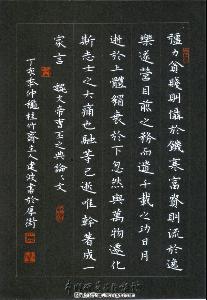 彊力貧賤則懾於饑寒富貴則流於逸
樂遂營目前之務而遺千載之功日月
逝於上體貌衰於下忽然與萬物遷化
斯志士之大痛也融等已逝唯幹著成一
家言 魏文帝曹丕之典論〻文
丁亥季 桂竹齋主人建波書於厚街